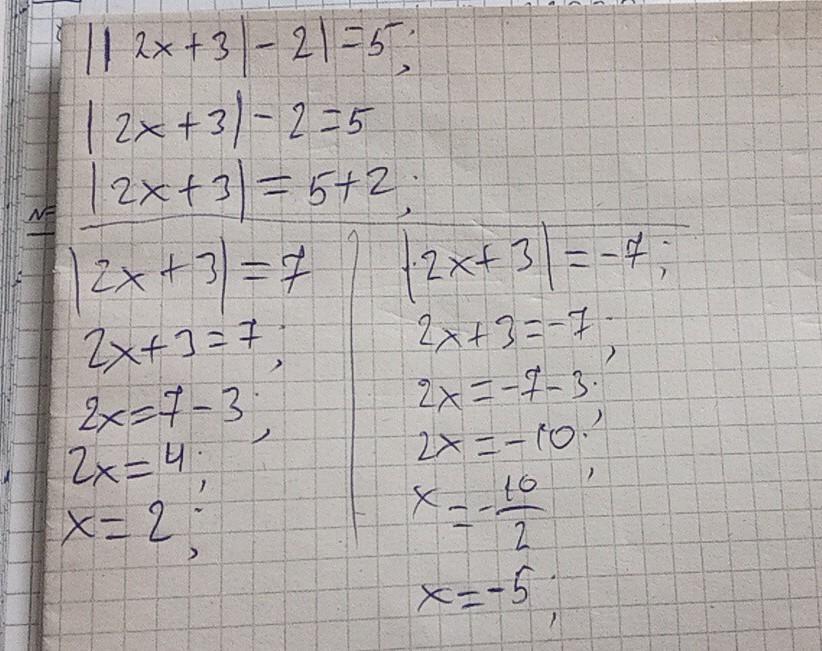 ||2x+3|-2|=5;
|2x+3|-2=5
|2x+3|=5+2;
|2x+3|=7
2x+3=7;
2x=7-3;
2x=4;
x=2;
|2x+3|=-7;
2x+3=-7;
2x=-7-3;
2x=-10;
x=-10/2
x=-5;